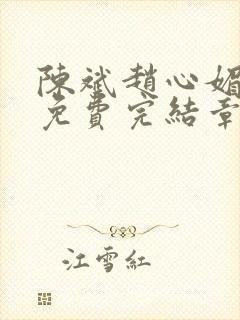 陳斌趙心媚
免費完結章
江雪紅